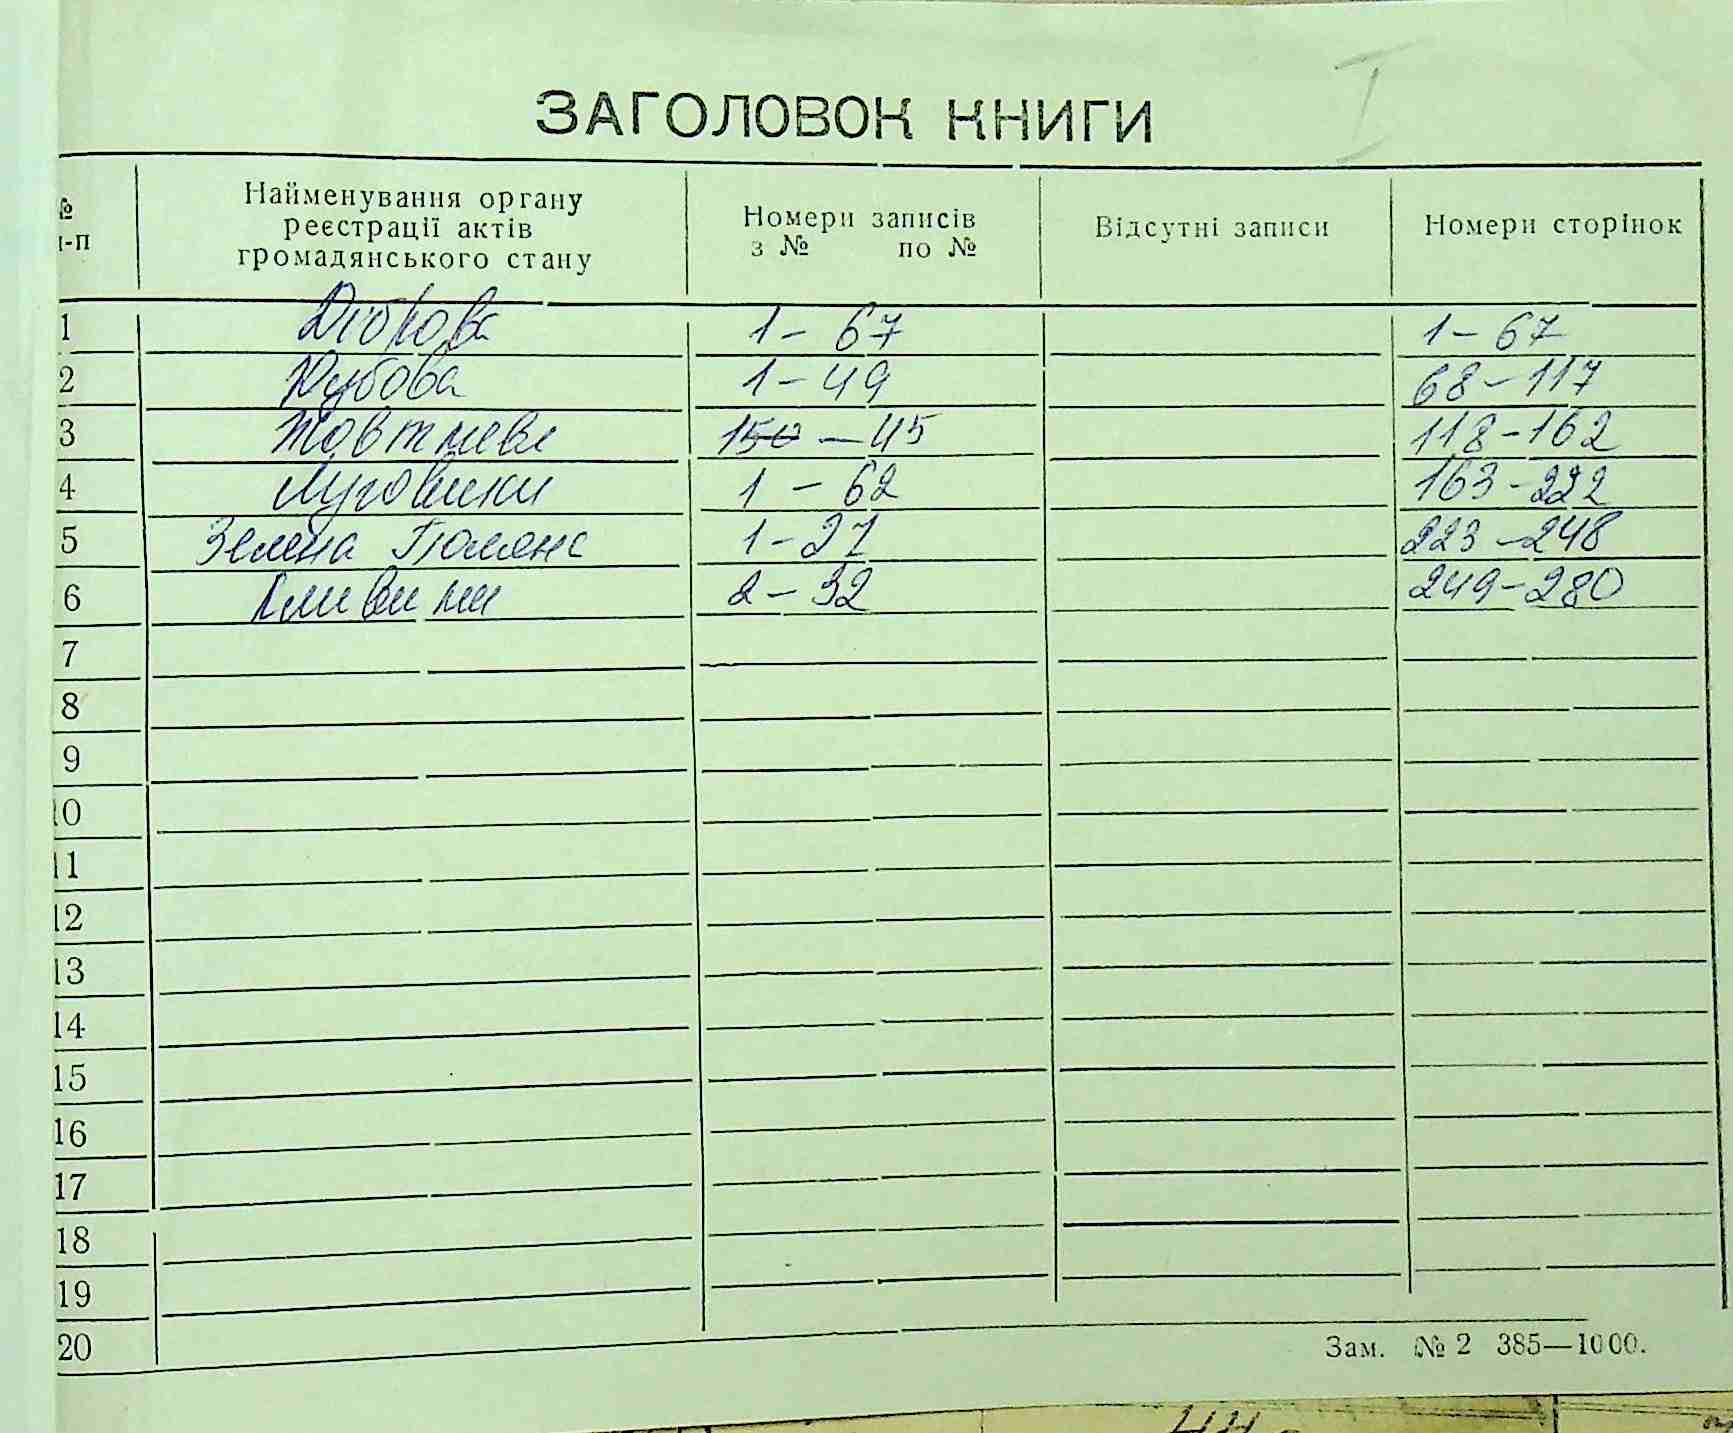 I
ЗАГОЛОВОК КНИГИ
№
п-п
Найменування органу
реєстрації актів
громадянського стану
Номери записів
з № по №
Відсутні записи
Номери сторінок
1 Діброва 1 - 67 1 - 67
2 Дубова 1 - 49 68 - 117
3 Жовтневе 150 - 45 118 - 162
4 Луговики 1 - 62 163 - 222
5 Зелена Поляна 1 - 27 223 - 248
6 2 - 32 249 - 280
7
8
9
10
11
12
13
14
15
16
17
18
19
20
Зам. № 2 385—1000.